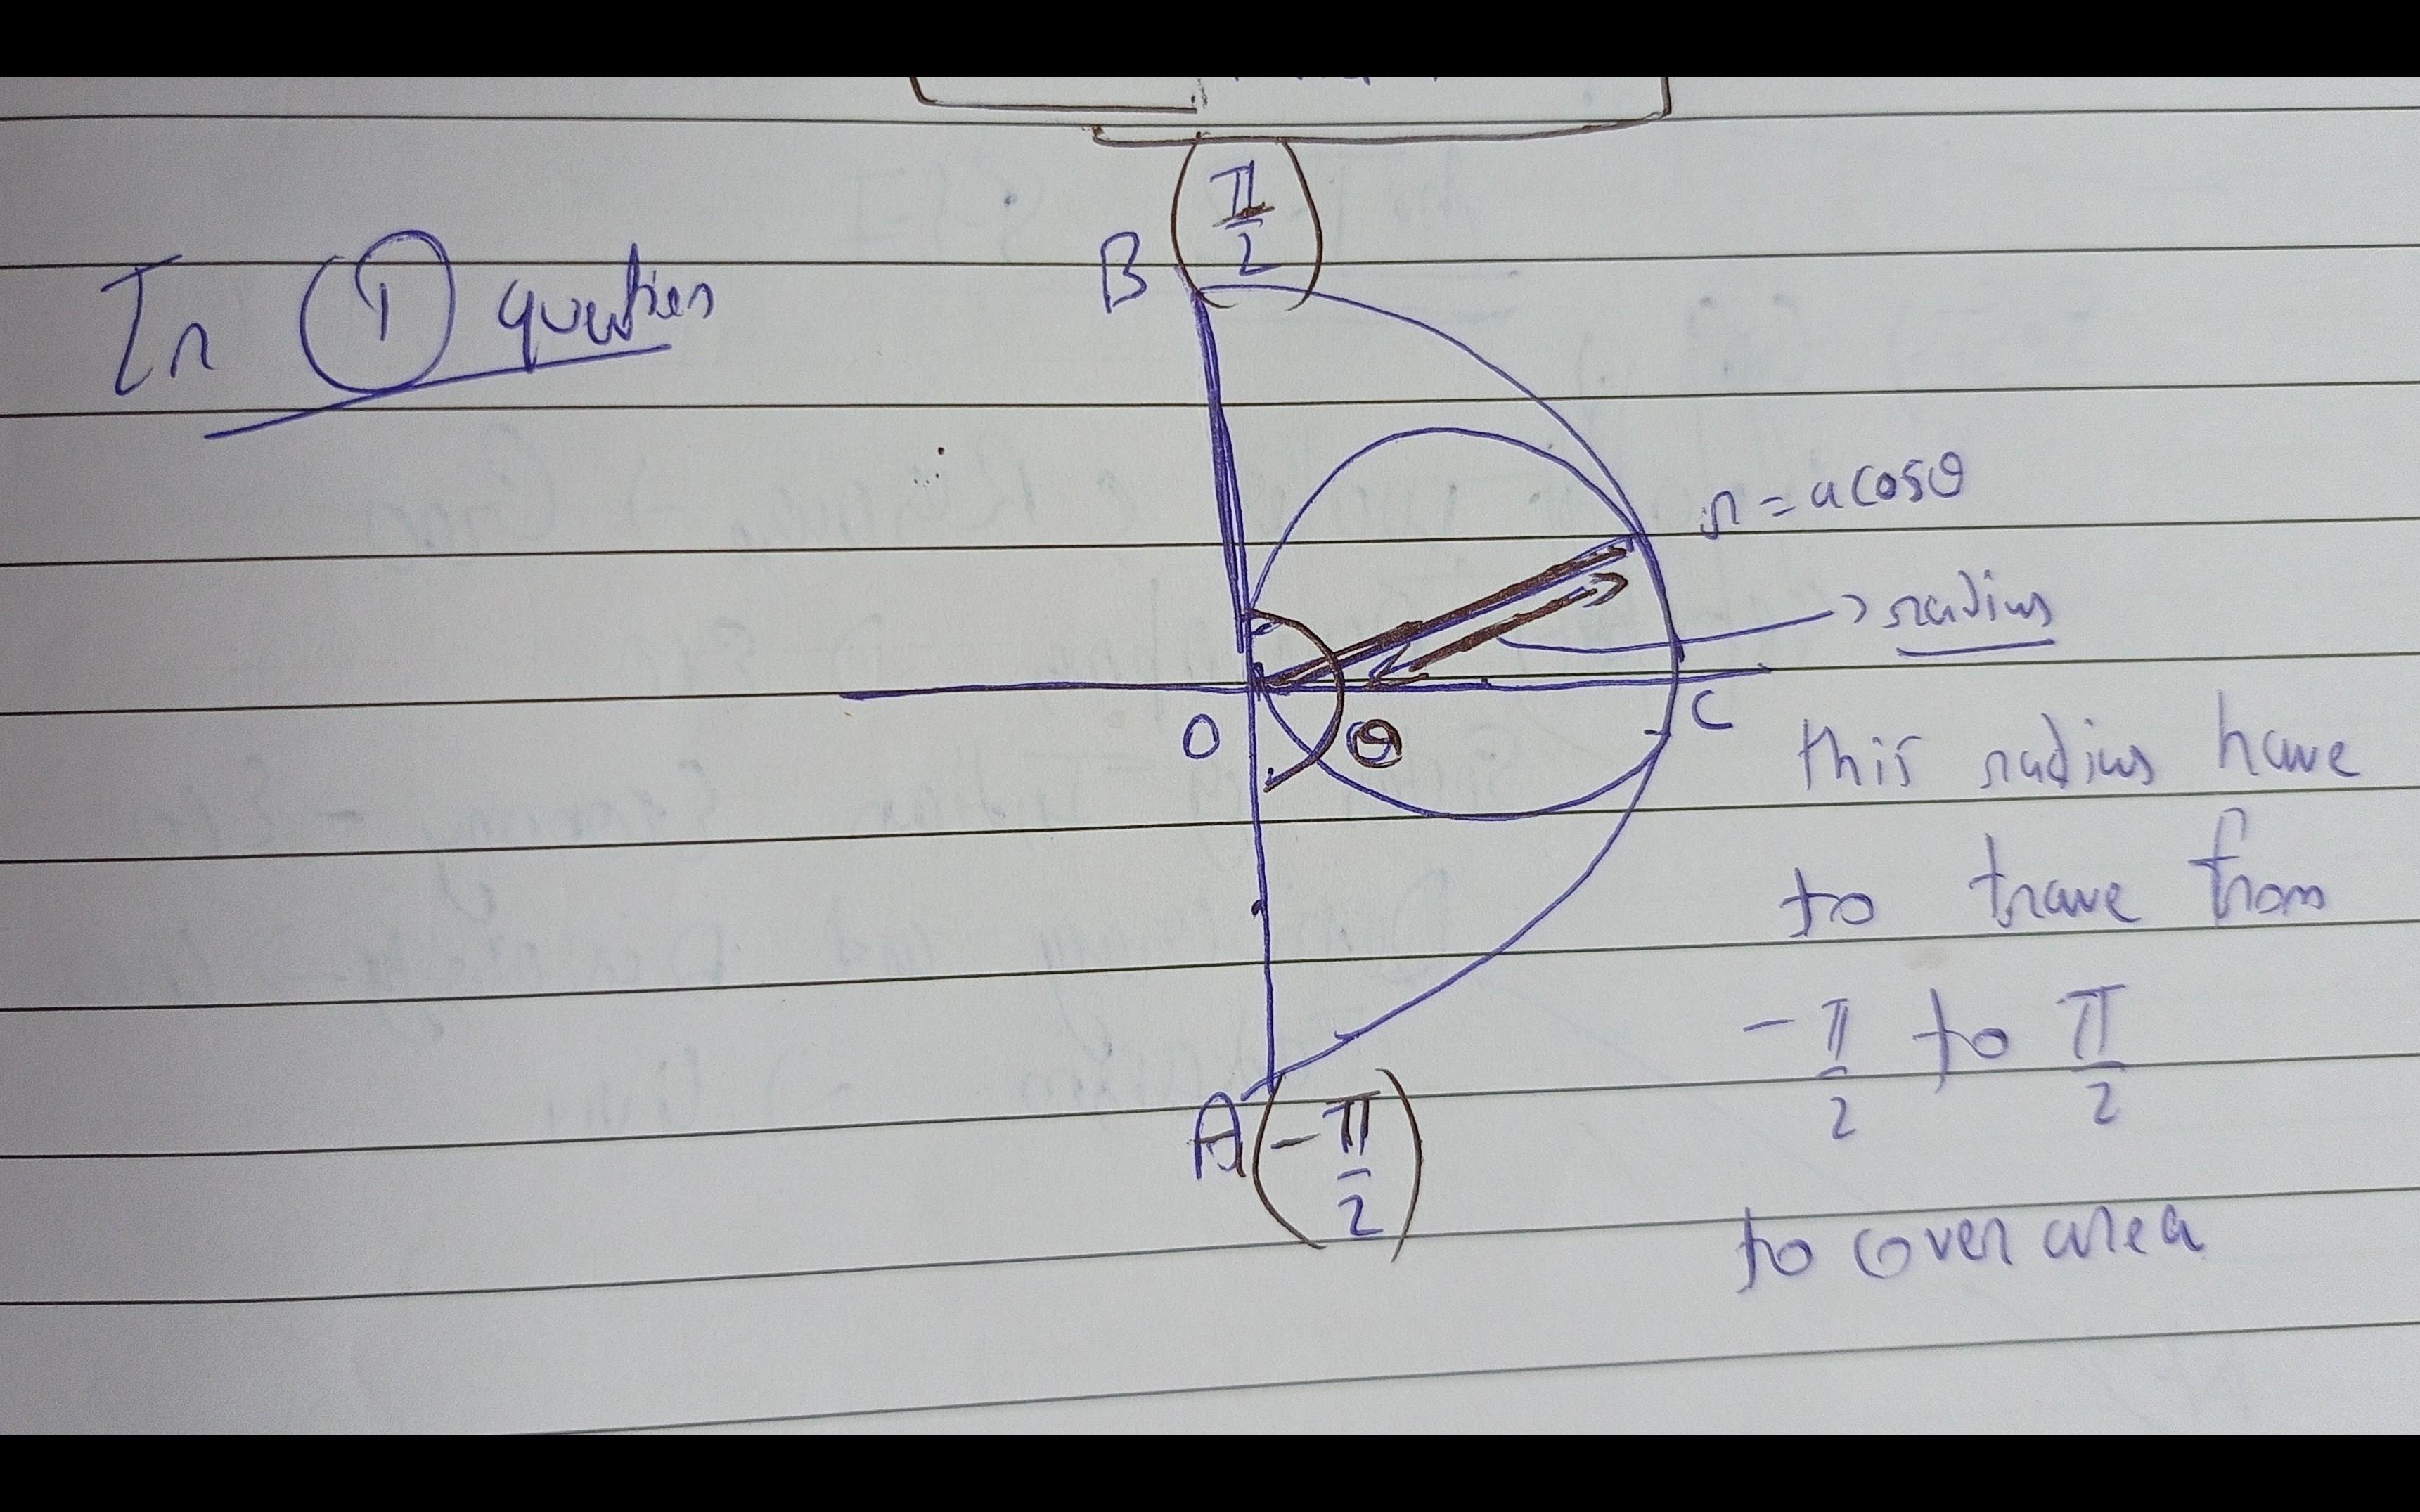 In ① question
B (π/2)
r = a cosθ
→ radius
O θ C
this radius have
to trave from
-π/2 to π/2
A (-π/2)
to cover area